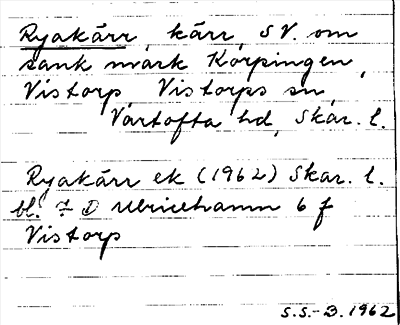 Ryakärr, kärr, SV. om
sank mark Körpingen,
Vistorp, Vistorps sn,
Vartofta hd, Skar. l.
Ryakärr ek (1962) Skar. l.
bl. 7 D Ulricehamn 6 f
Vistorp
S.S.-B. 1962